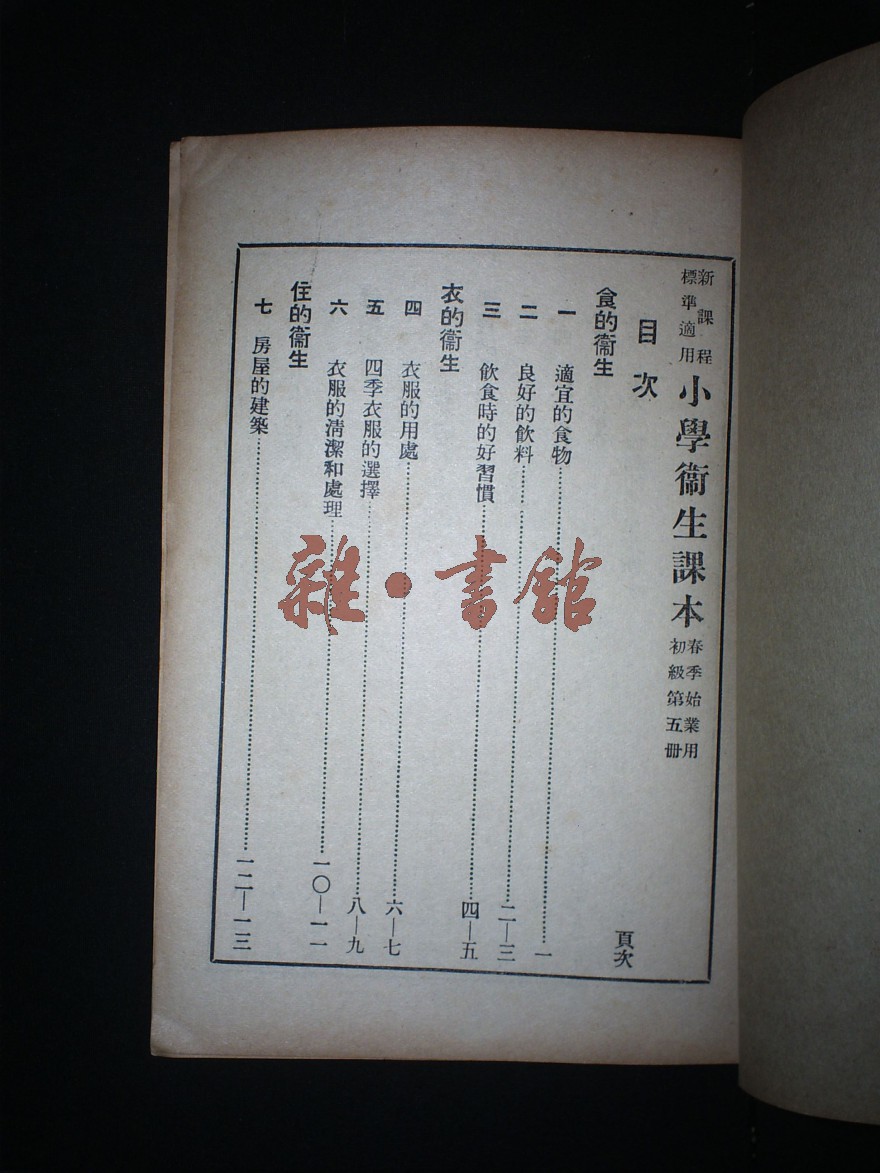 新課程
標準適用
小學衞生課本
春季始業用
初級第五册
目次
頁次
食的衞生
一 適宜的食物 一
二 良好的飲料 二—三
三 飲食時的好習慣 四—五
衣的衞生
四 衣服的用處 六—七
五 四季衣服的選擇 八—九
六 衣服的清潔和處理 一〇—一一
住的衞生
七 房屋的建築 一二—一三
雜·書館